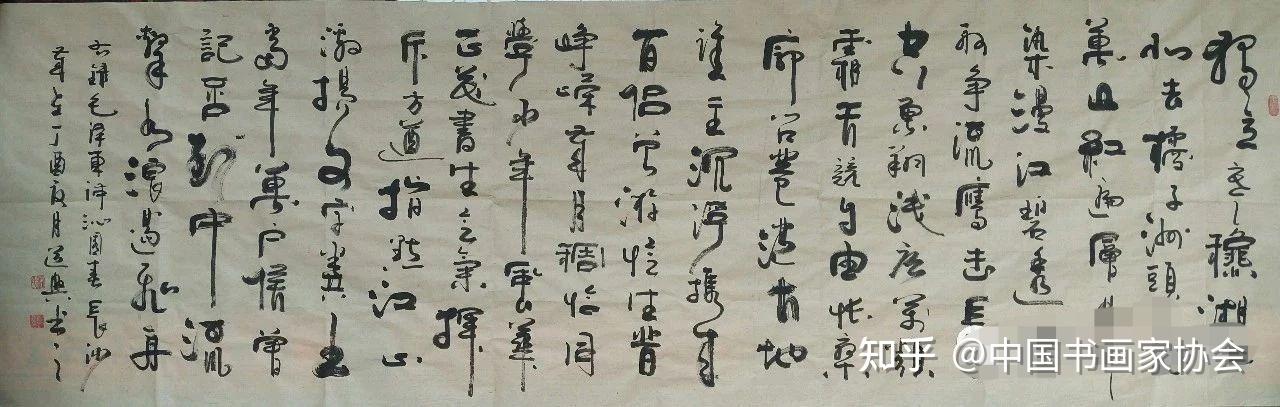 獨立寒穐湘
北去橘子洲頭
萬山紅遍層
染漫江碧透
舸争流鷹击長
空魚翔浅底萬類
霜天競自由怅寥
廓问苍茫大地
誰主沉浮携来
百侣曾游忆往昔
峥嵘歲月稠恰同
學少年風華
正茂書生意氣揮
斥方遒指點江山
激揚文字糞土
當年萬户侯曾
記否到中流
擊水浪遏飛舟
右錄毛澤東詩沁園春長沙
歲在丁酉夏月道興書之
知乎 @中国书画家协会